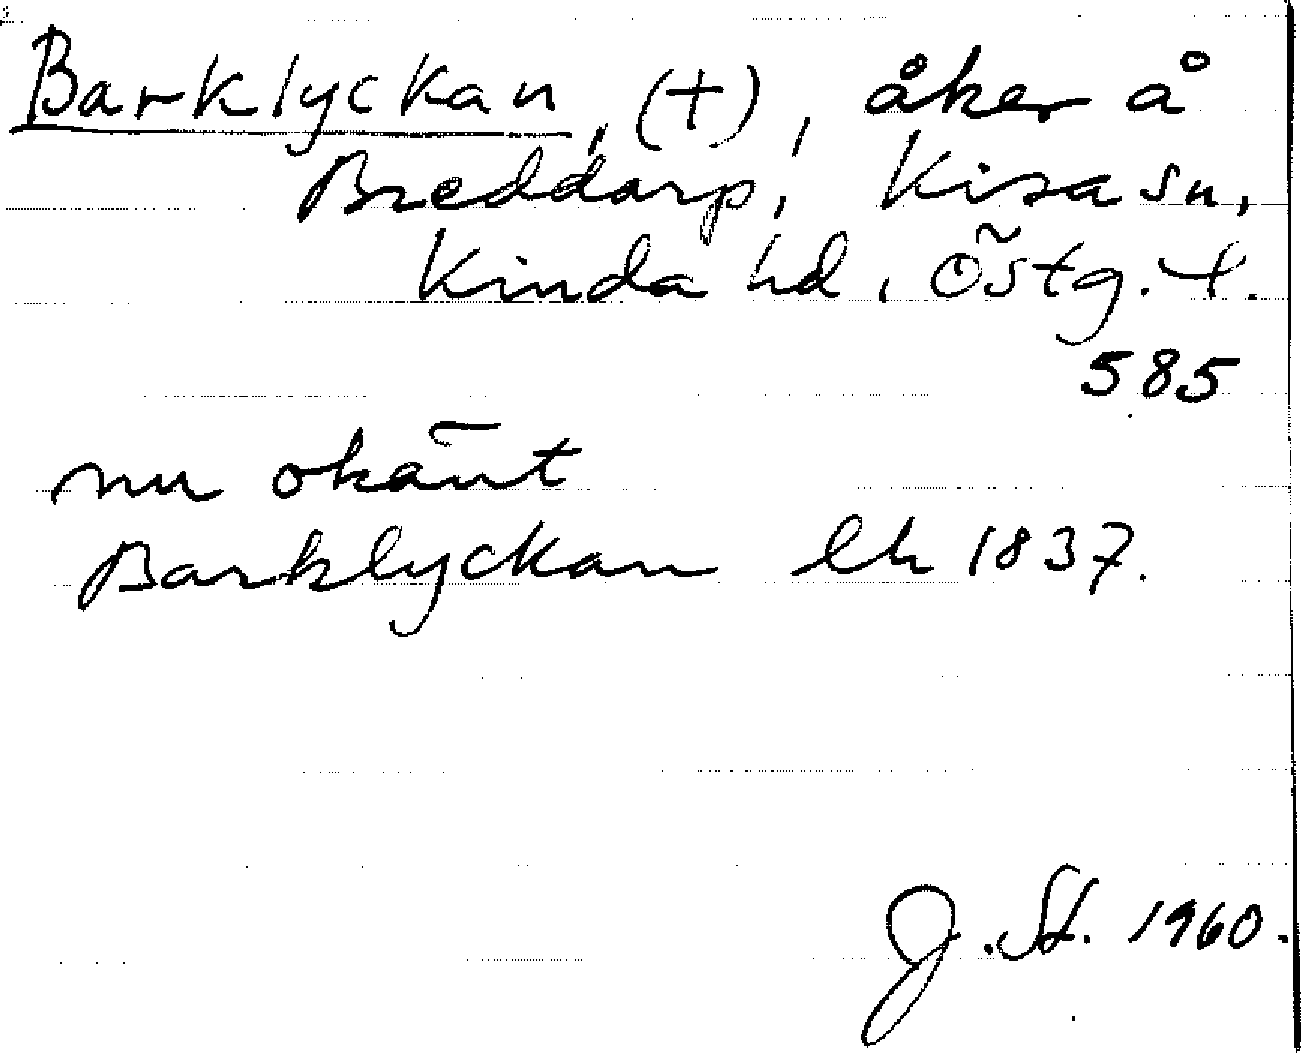 Barklyckan, (+), åker å
Breddarp, Kisa sn,
Kinda hd, Östg. l.
585
nu okänt
Barklyckan lh 1837.
J. St. 1960.